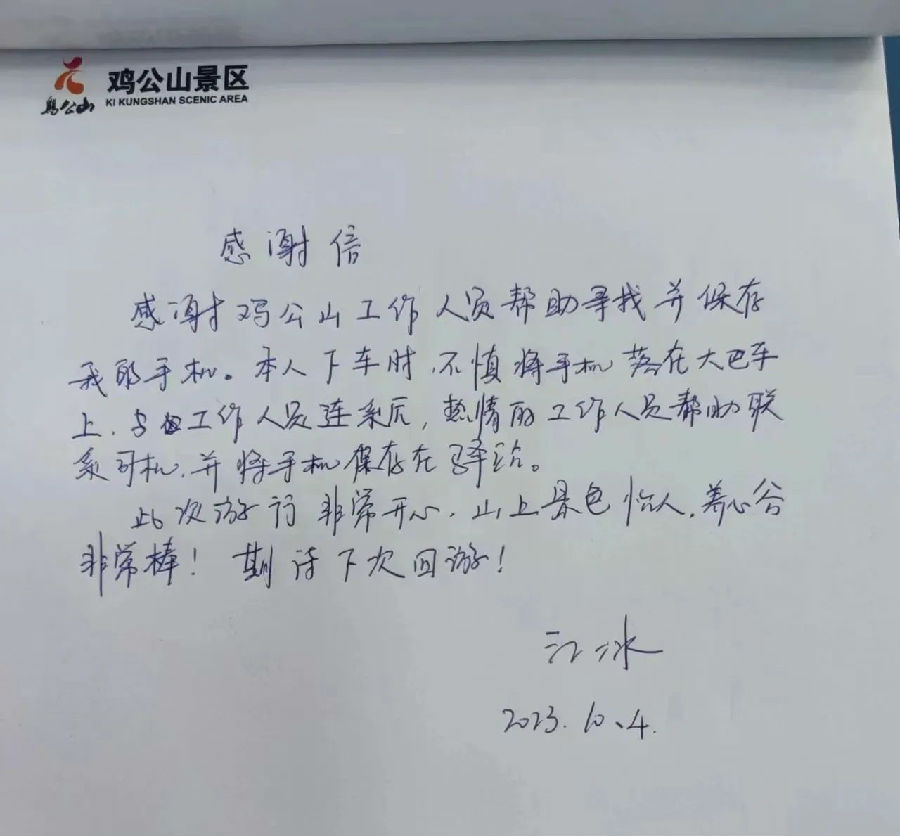 鸡公山
鸡公山景区
KI KUNGSHAN SCENIC AREA
感谢信
感谢鸡公山工作人员帮助寻找并保存
我的手机。本人下车时,不慎将手机落在大巴车
上.与工作人员连系后,热情的工作人员帮助联
系司机.并将手机保存在驿站。
此次游行非常开心.山上景色怡人.养心谷
非常棒!期待下次回游!
江冰
2023.10.4.